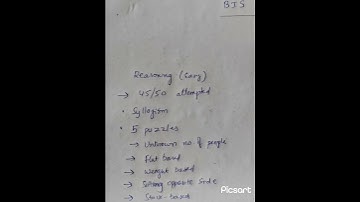 BIS
Reasoning (Easy)
→ 45/50 attempted
• Syllogism
• 5 puzzles
→ Unknown no. of people
→ Flat based
→ Weight based
→ Sitting opposite side
Picsart